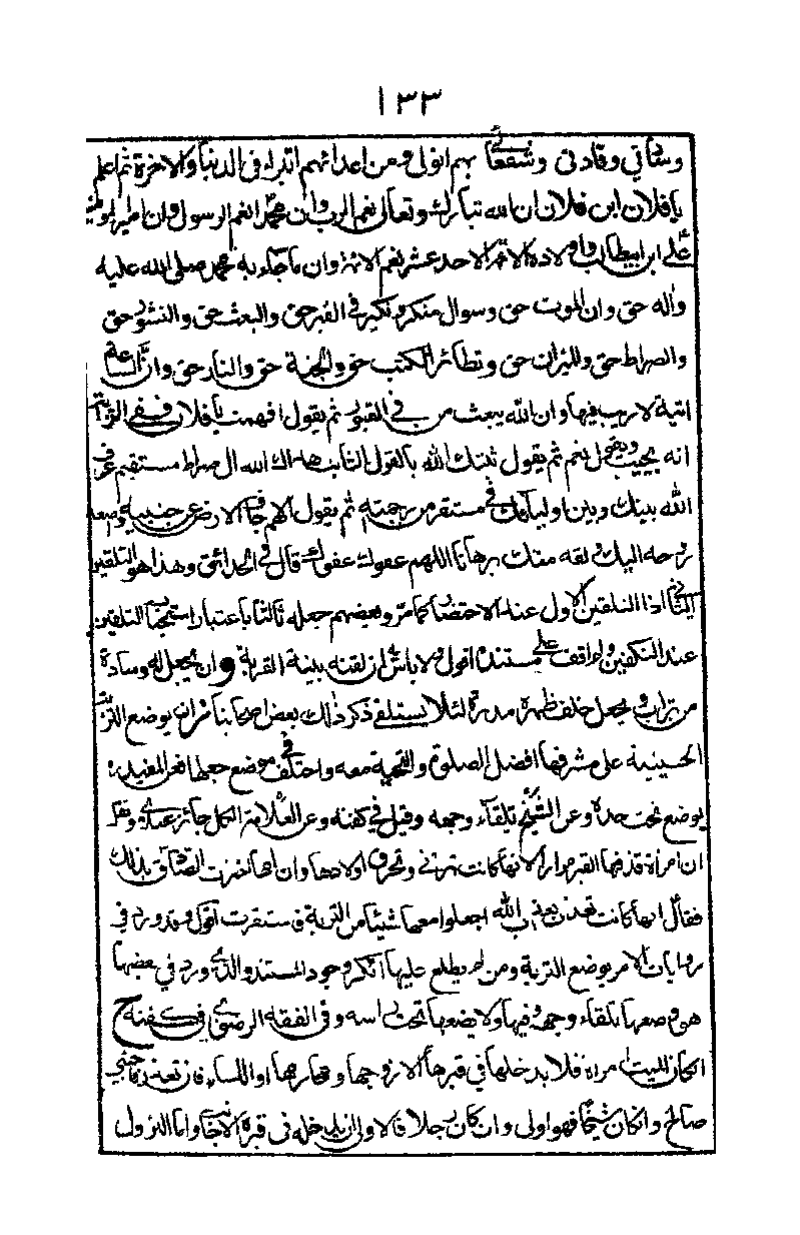 ١٣٣
وساداتي وقادتي وشفعائي بهم اتولى ومن اعدائهم اتبرء في الدنيا والاخرة ثم اعلم
يا فلان ابن فلان ان الله تبارك وتعالى نعم الرب وان محمدا نعم الرسول وان امير المؤمنين
علي ابن ابيطالب واولاده الائمة الاحد عشر نعم الائمة وان ما جاء به محمد صلى الله عليه
واله حق وان الموت حق وسوال منكر ونكير في القبر حق والبعث حق والنشور حق
والصراط حق والميزان حق وتطائر الكتب حق والجنة حق والنار حق وان الساعة
اتية لا ريب فيها وان الله يبعث من في القبور ثم يقول افهمت يا فلان ففي
انه يجيب ويقول نعم ثم يقول ثبتك الله بالقول الثابت هداك الله الى صراط مستقيم عرف
الله بينك وبين اوليائك في مستقر من رحمته ثم يقول اللهم جاف الارض عن جنبيه واصعد
روحه اليك ولقه منك برهانا اللهم عفوك عفوك قال في الحدائق وهذا هو التلقين
الثاني اذا التلقين الاول عند الاحتضار كما مر وبعضهم جعله ثالثا باعتبار استحباب التلقين
عند التكفين ولم اقف على مستنده اقول ولا باس ان لقنه بنية القربة وان يجعل له وسادة
من تراب ويجعل خلف ظهره مدرة لئلا يستلقي ذكر ذلك بعض اصحابنا وان يوضع التربة
الحسينية على مشرفها افضل الصلوة والتحية معه واختلف في موضع جعلها فعن المفيد
يوضع تحت خده وعن الشيخ تلقاء وجهه وقيل في كفنه وعن العلامة الكل جائز
ان امراة قذفها القبر مرارا لانها كانت تزني وتحرق اولادها وان امها اخبرت الصادق بذلك
فقال انها كانت تعذب بعذاب الله اجعلوا معها شيئا من التربة فاستقرت اقول وقد ورد في
روايات الامر بوضع التربة ومن لم يطلع عليها انكر وجود المستند والذي ورد في بعضها
هو وضعها تلقاء وجهه وفيها ولا يضعها تحت راسه وفي الفقه الرضوي في كفنه
ان كان الميت امراة فلا يدخلها في قبرها الا زوجها ومحارمها او النساء فان تعذر فاجنبي
صالح وان كان شيخا فهو اولى وان كان رجلا فالاولى ان يدخله في قبره الاجانب واما النزول